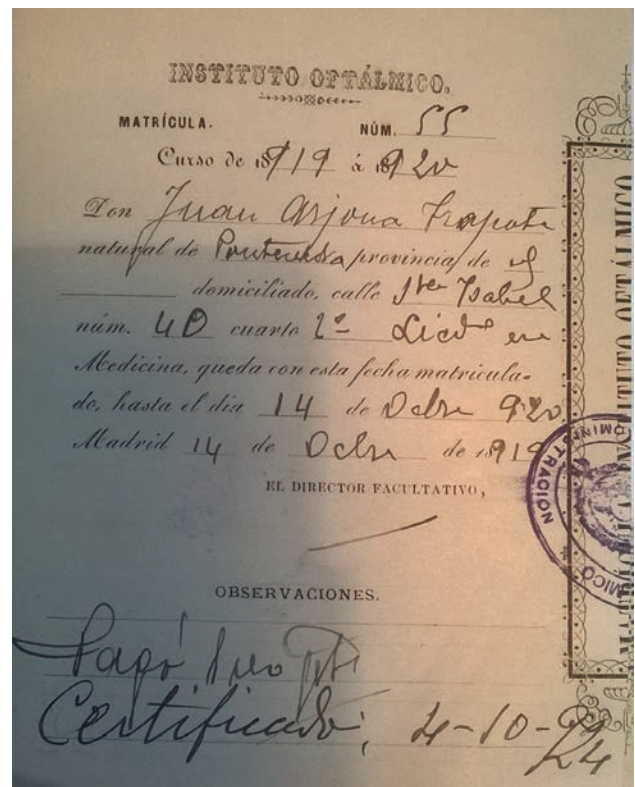 INSTITUTO OFTÁLMICO.
MATRÍCULA. NÚM. 55
Curso de 1919 á 1920
Don Juan Arjona Trapote
natural de Pontevedra provincia de id
domiciliado, calle Sta Isabel
núm. 40 cuarto 2º Licdo en
Medicina, queda con esta fecha matricula-
do, hasta el dia 14 de Octbre 920
Madrid 14 de Octbre de 1919
EL DIRECTOR FACULTATIVO,
OBSERVACIONES.
Pagó
Certificado; 4-10-24
ADMINISTRACIÓN
INSTITUTO OFTÁLMICO